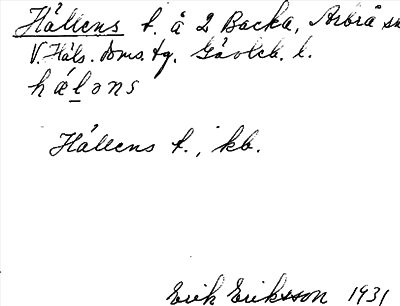 Hållens t. å 2 Backa, Arbrå sn
V. Häls. doms. tg. Gävleb. l.
hǻləns
Hållens t., kb.
Erik Eriksson 1931